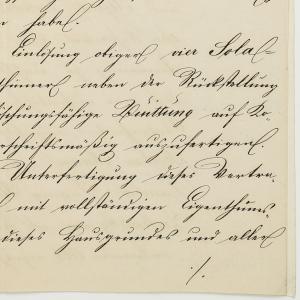 haben.
Einlösung obiger vier Sola-
neben der Rückstellung
löschungsfähige Quittung auf Ko-
vorschriftsmäßig auszufertigen.
Unterfertigung dieses Vertra-
mit vollständigen Eigenthums-
dieses Hausgrundes und aller
./.